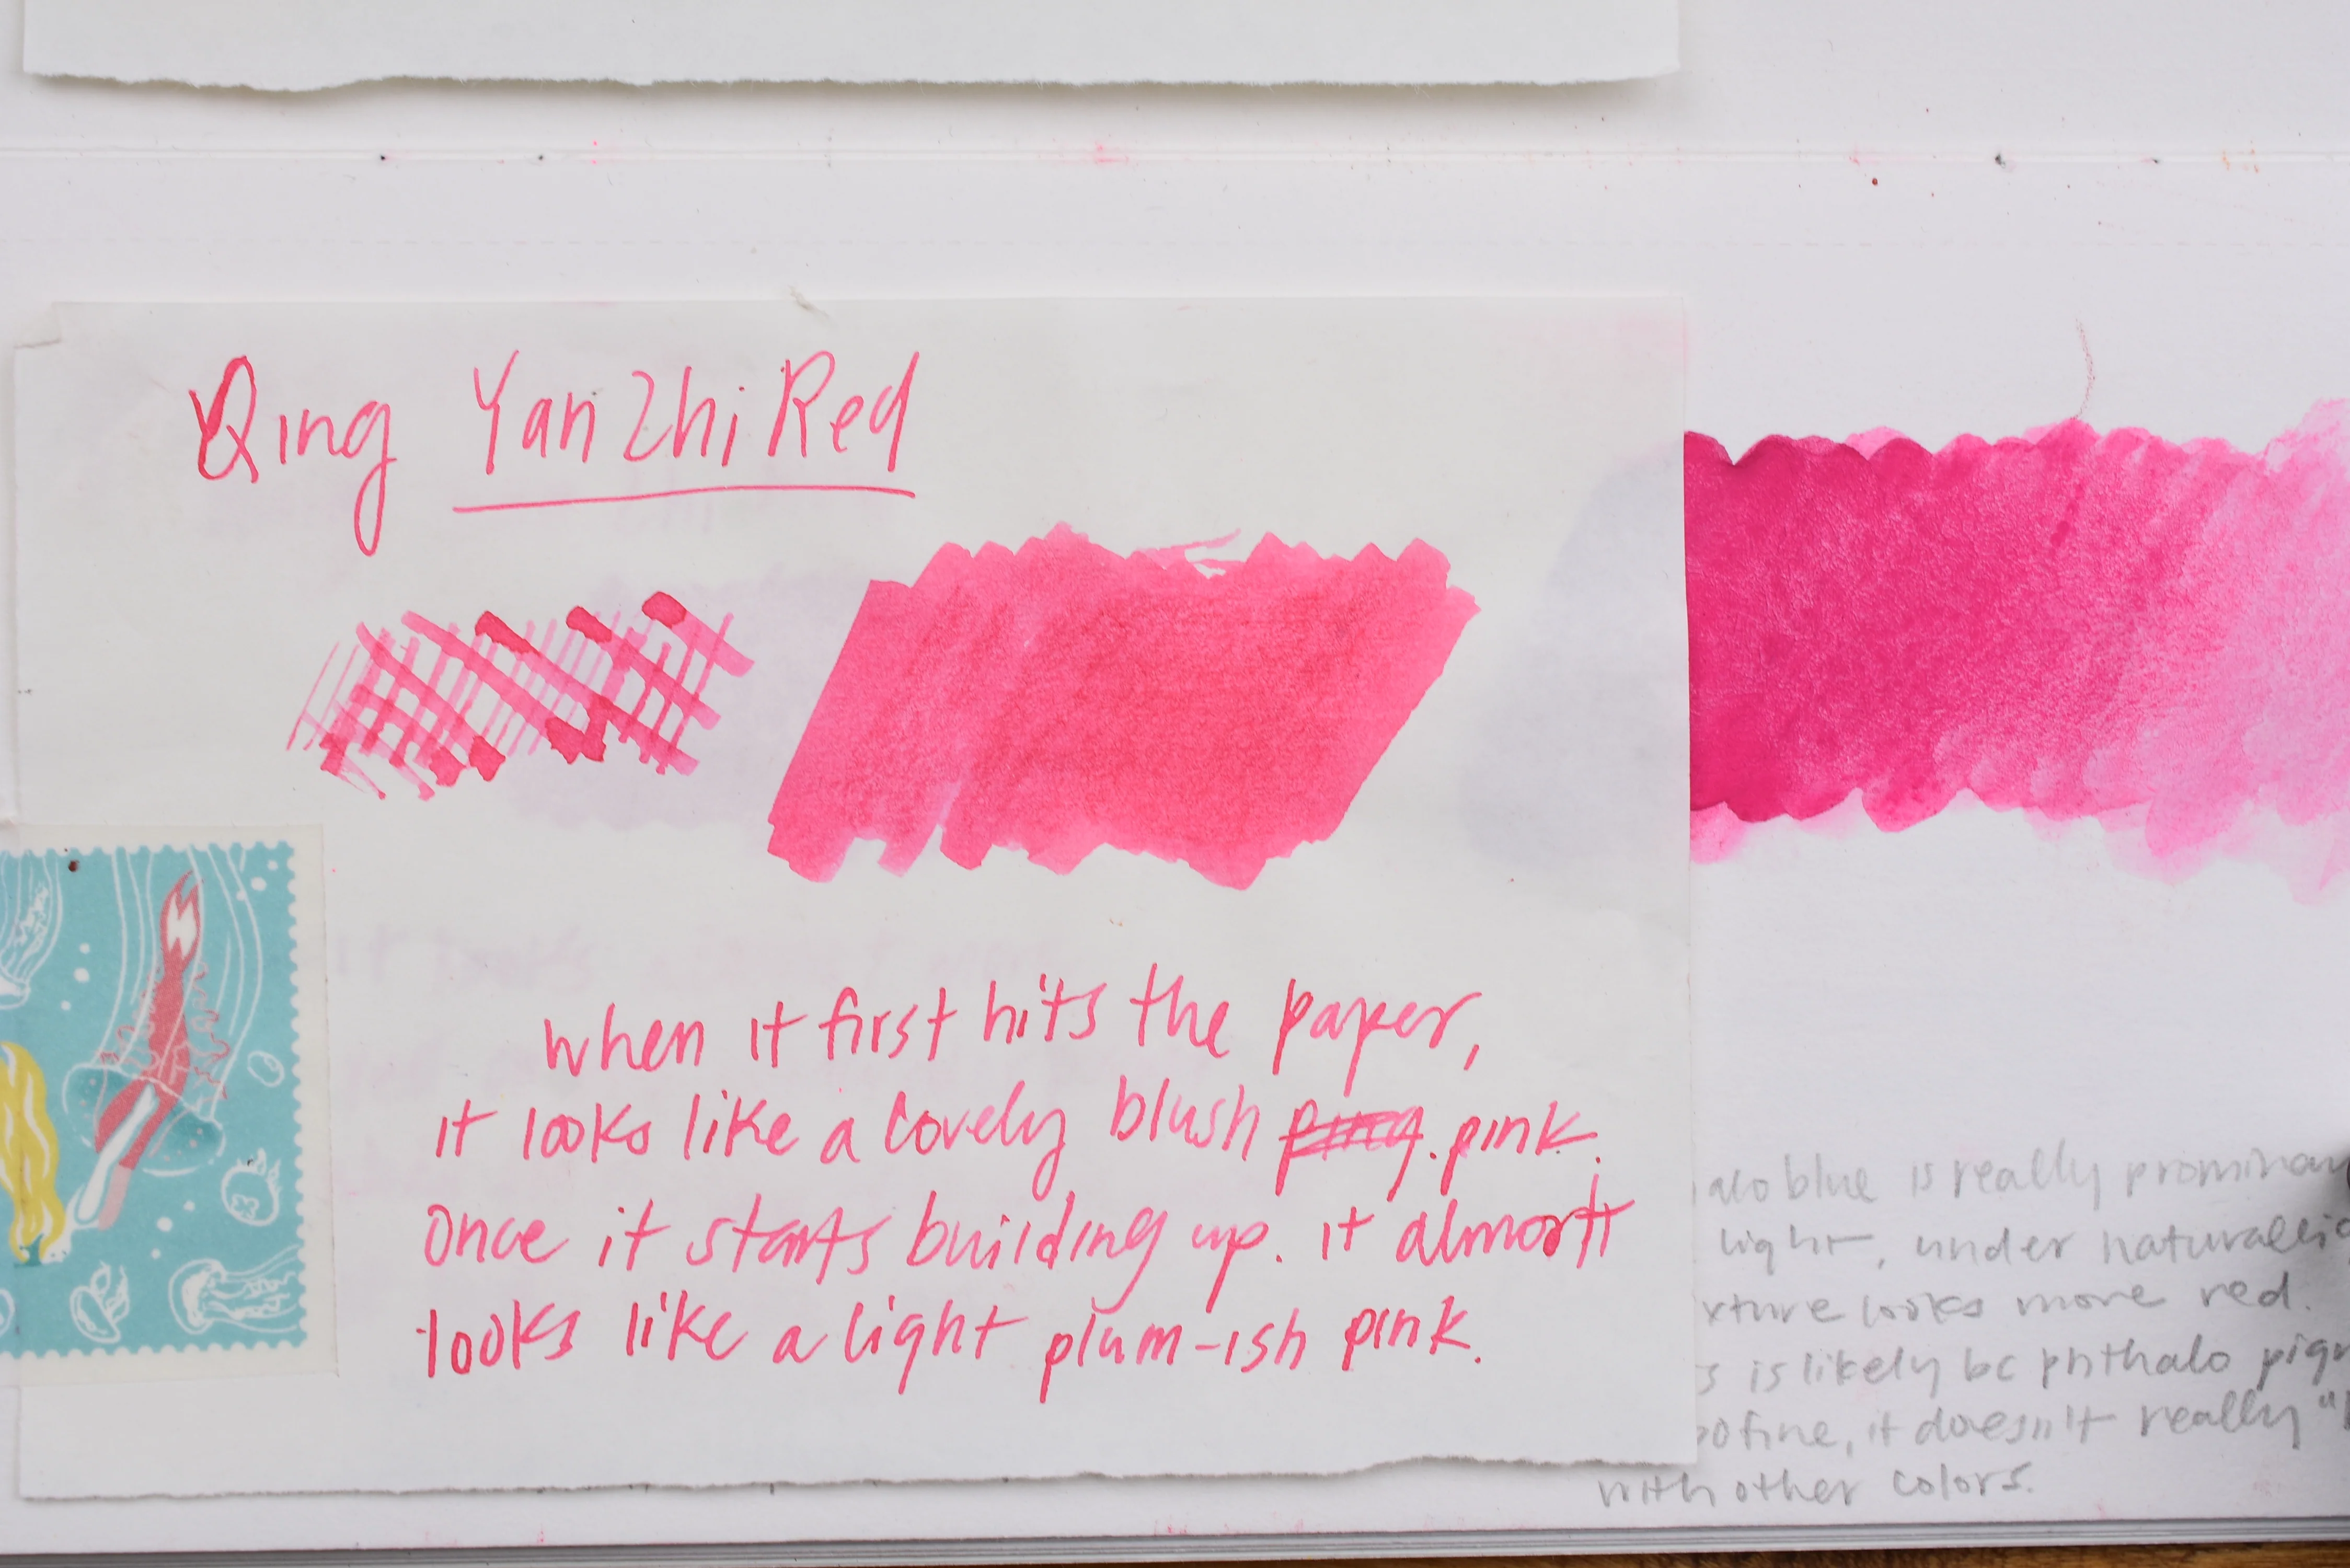 Qing Yan Zhi Red
When it first hits the paper,
it looks like a lovely blush pink.
Once it starts building up. it almost
looks like a light plum-ish pink.
alo blue is really prominan
light, under naturallig
xture looks more red.
s is likely bc phthalo pigm
fine, it doesn't really "
with other colors.